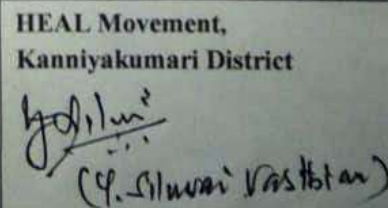 HEAL Movement,
Kanniyakumari District
(Y. Siluvai Vasthian)